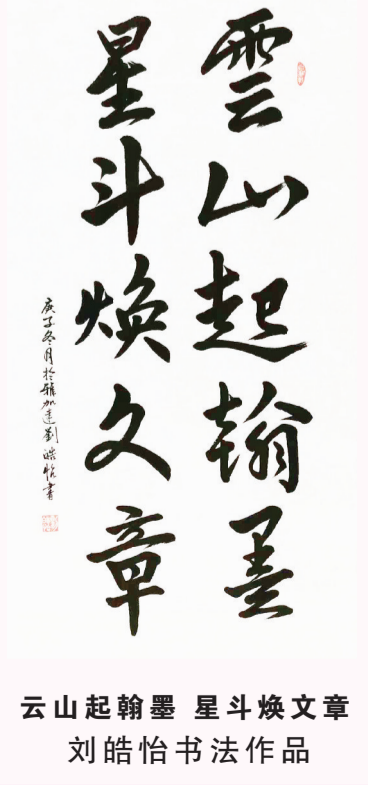 雲山起翰墨
星斗焕文章
庚子冬月於雅加達劉皓怡書
云山起翰墨 星斗焕文章
刘皓怡书法作品